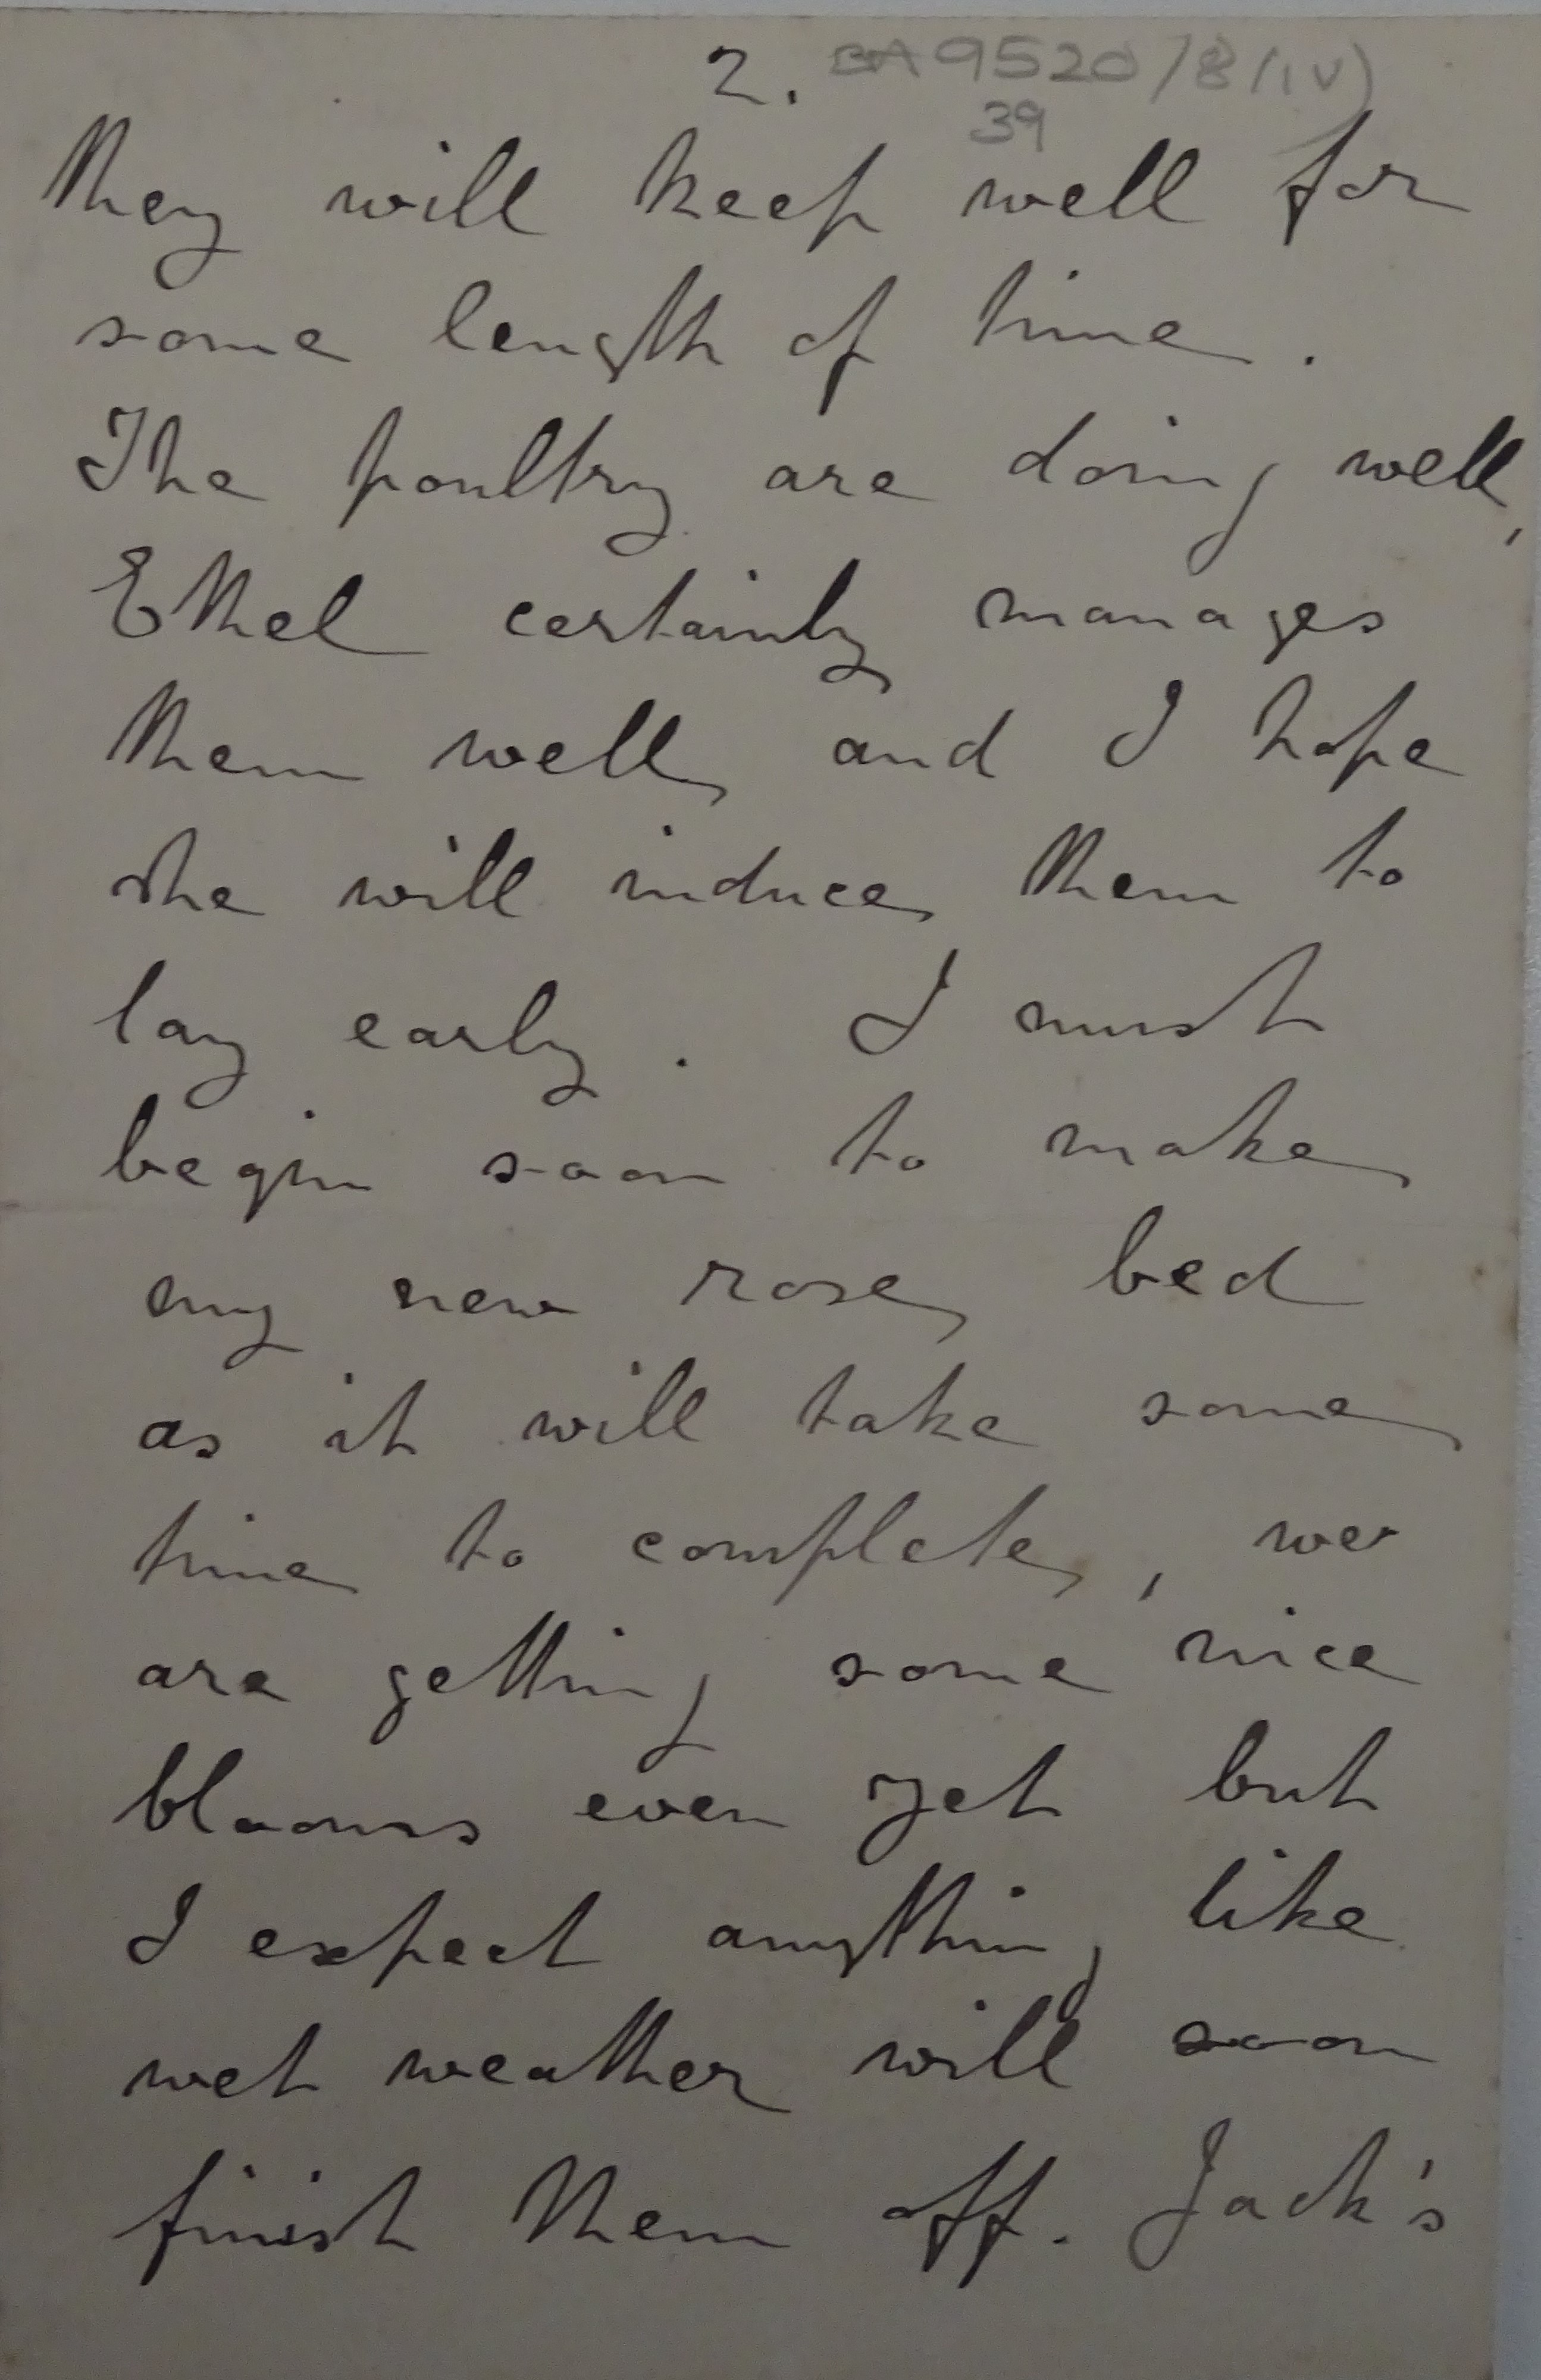 2. BA 9520/8(iv)
39
they will keep well for
some length of time.
The poultry are doing well,
Ethel certainly manages
them well and I hope
she will induce them to
lay early. I must
begin soon to make
my new rose bed
as it will take some
time to complete, we
are getting some nice
blooms even yet but
I expect anything like
wet weather will soon
finish them off. Jack's